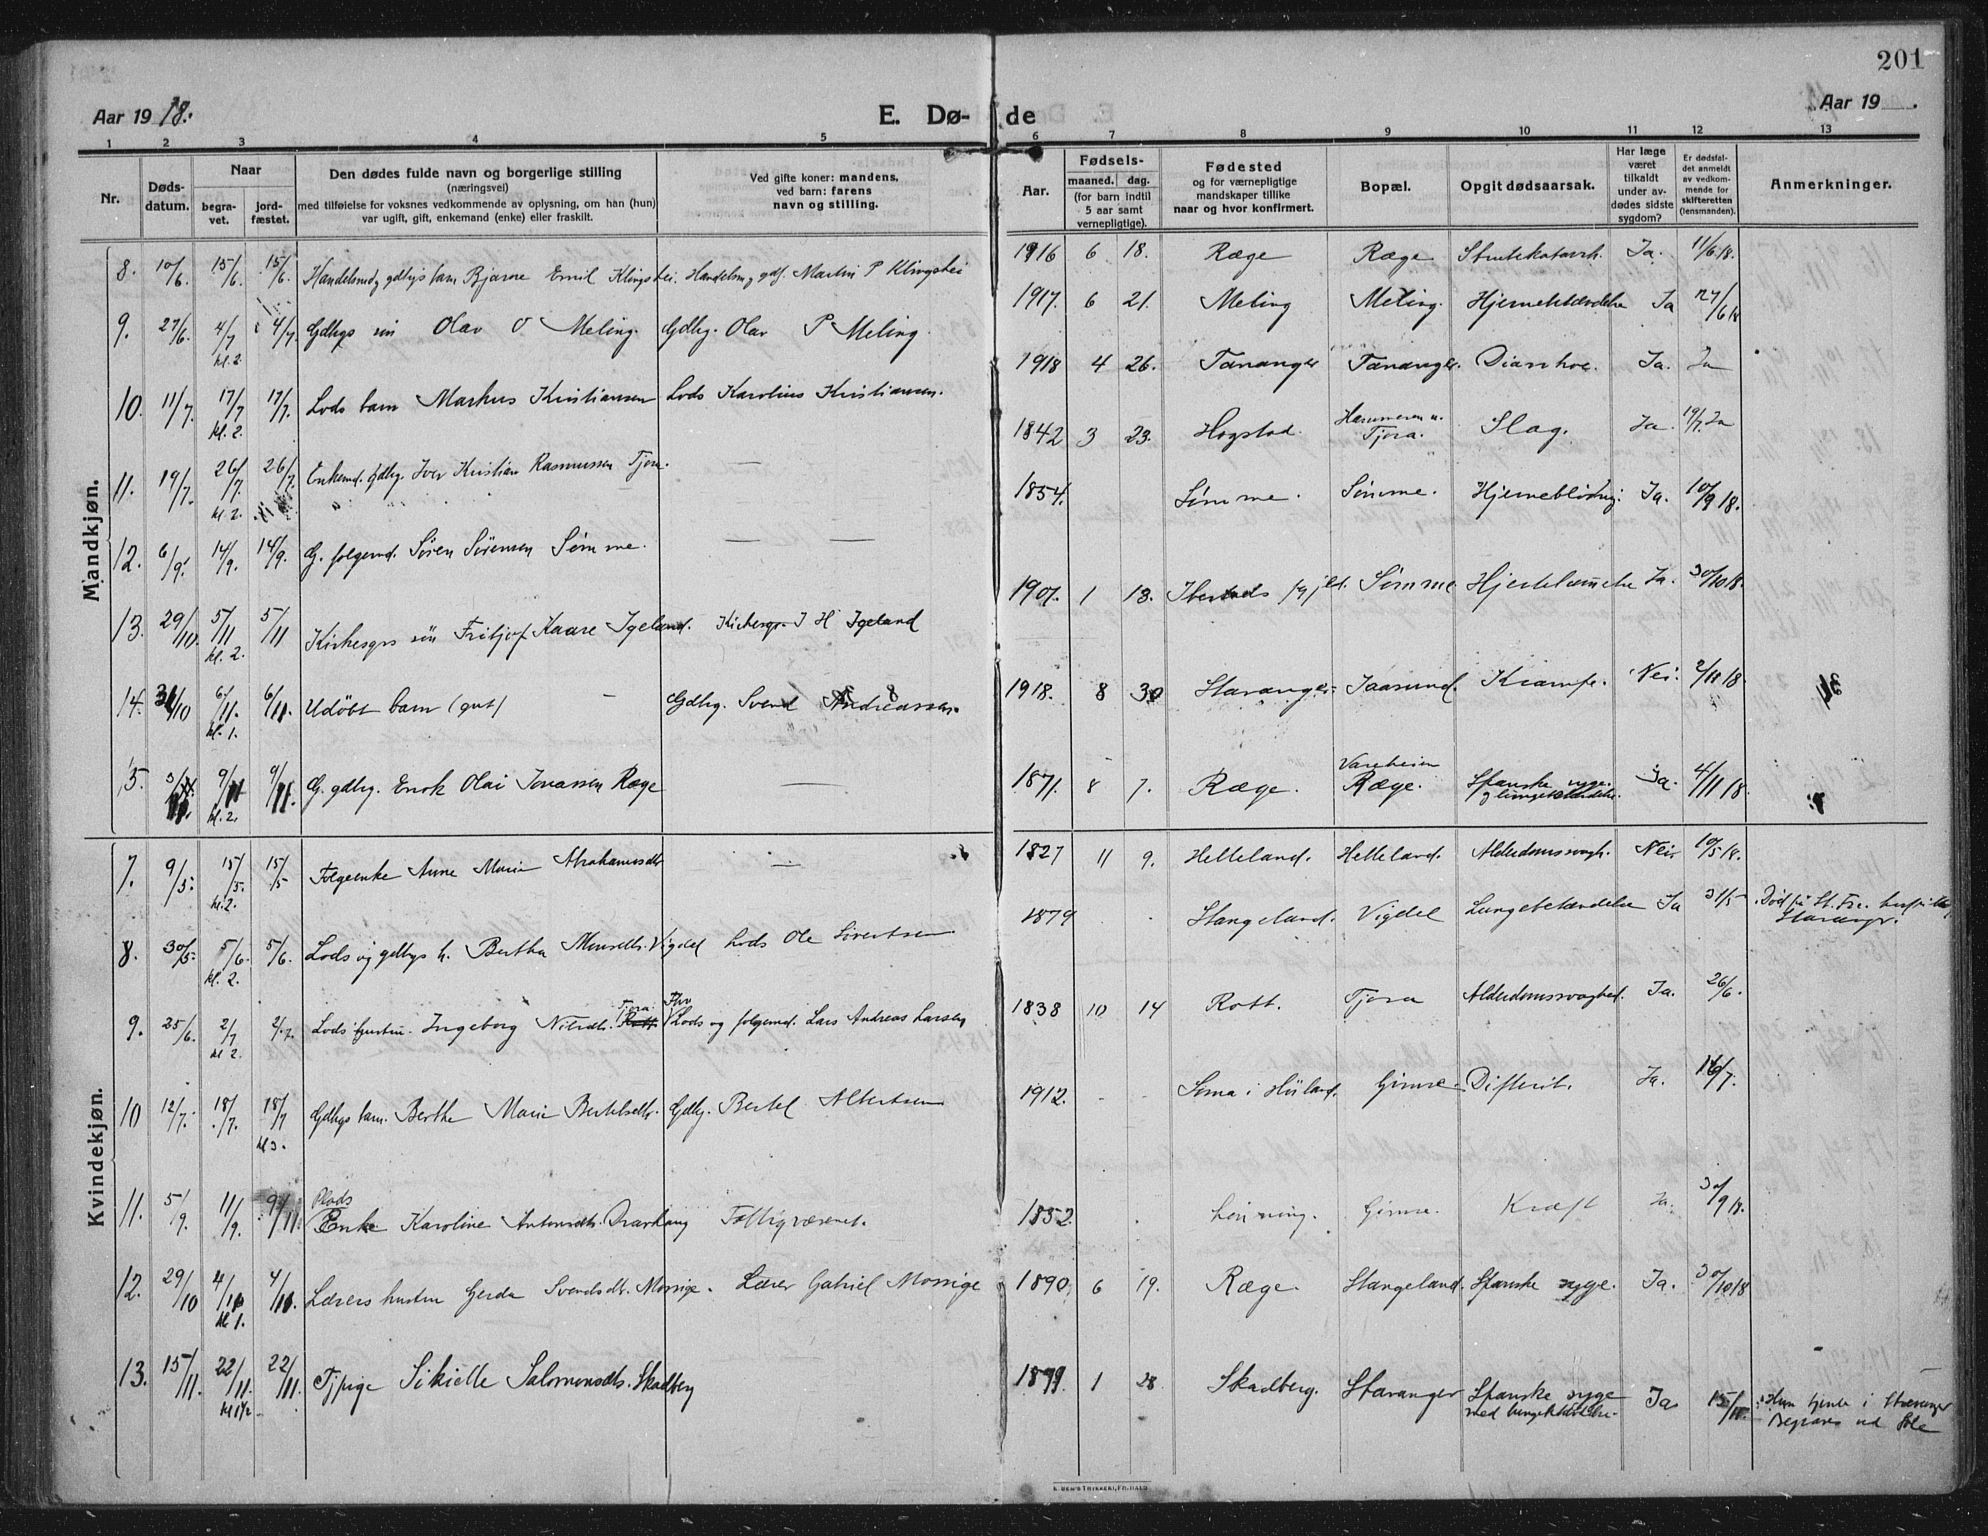 201
Aar 1918.
E. Dø-de
Aar 19 .
1 2 3 4 5 6 7 8 9 10 11 12 13
Nr.
Døds-datum.
Naar
begra-vet.
jord-fæstet.
Den dødes fulde navn og borgerlige stilling
(næringsvei)
med tilføielse for voksnes vedkommende av oplysning, om han (hun)
var ugift, gift, enkemand (enke) eller fraskilt.
Ved gifte koner: mandens,
ved barn: farens
navn og stilling.
Aar.
Fødsels-
maaned. dag.
(for barn indtil
5 aar samt
vernepligtige).
Fødested
og for værnepligtige
mandskaper tillike
naar og hvor konfirmert.
Bopæl.
Opgit dødsaarsak.
Har læge
været
tilkaldt
under av-
dødes sidste
sygdom?
Er dødsfal-
det anmeldt
av vedkom-
mende for
skifteretten
(lensmanden).
Anmerkninger.
Mandkjøn.
8. 10/6. 15/6. 15/6. Handelsmd og gdbrgs barn Bjarne Emil Klingshei. Handelsm. og gdbr. Martin P Klingshei 1916 6 18. Ræge Ræge Strubekatarrh. Ja. 11/6 18.
9. 27/6. 4/7 kl. 2. 4/7. Gdbrgs søn Olav O Meling. Gdbrg. Olav P Meling. 1917. 6 21. Meling Meling. Hjernebetændelse Ja 27/6 18
10. 11/7. 17/7 kl. 2. 17/7. Lods barn Markus Kristiansen Lods Karolius Kristiansen. 1918 4 26. Tananger Tananger. Diarrhoe. Ja. Ja
11. 19/7. 26/7. kl. 2. 26/7. Enkemd. gdbrg. Iver Kristian Rasmussen Tjora. — 1842 3 23. Hogstad. Hammeren u. Tjora. Slag. Ja. 19/7. Ja
12. 6/9. 14/9. 14/9. G. folgemd. Søren Sørensen Sømme. — — 1854. Sømme. Sømme. Hjerneblødning. Ja. 10/9 18.
13. 29/10. 5/11 kl. 2. 5/11 Kirkesgrs søn Fritjof Kaare Igeland. Kirkesgr. J H Igeland 1907. 1 13. Sømme Hjertelammelse Ja. 30/10 18.
14. 31/10 6/11. kl. 1. 6/11. Udøbt barn (gut) — Gdbrg. Svend Andreassen. 1918. 8 30 Stavanger. Jaasund. Krampe. Nei. 2/11 18.
15. 3/11. 9/11 kl. 2. 9/11. G. gdbrg. Enok Olai Jonassen Ræge — 1871. 8 7. Ræge. Vareheien Ræge. Spanske syge. og lungebetændelse. Ja. 4/11 18.
Kvindekjøn.
7. 9/5. 15/5. kl. 2. 15/5 Folgeenke Anne Marie Abrahamsdtr — 1827 11 9. Helleland. Helleland. Alderdomssvagh. Nei. 10/5 18.
8. 30/5. 5/6. kl. 2. 5/6. Lods og gdbrgs h. Bertha Monsdtr. Vigdel Lods Ole Sivertsen 1879 Stangeland. Vigdel Lungebetændelse Ja 31/5 Død på St. Fr. hospital, Stavanger.
9. 25/6. 2/7 kl 2. 2/7. Lods hustru. Ingeborg Nilsdtr. Tjora. Fhv Lods og folgemd. Lars Andreas Larsen 1838 10 14 Rott. Tjora Alderdomssvaghed. Ja. 26/6.
10 12/7. 18/7. 18/7 kl 3. Gdbrgs barn. Berthe Marie Bertelsdtr. Gdbrg. Bertel Albertsen 1912. Soma i Høiland. Gimre. Difterit. Ja. 16/7.
11. 5/9. 11/9. 9/11. Enke Karoline Antonsdtr. Fattigvæsenet. 1852. Gimre. Kræft Ja. 30/9 18.
12. 29/10 4/11 kl 1. 4/11. Lærers hustru Gerda Svendsdtr. Morrige. Lærer Gabriel Morrige 1890. 6 19. Ræge. Stangeland. Spanske syge. Ja. 30/10 18
13. 15/11. 22/11. 22/11. Tjpige Sikielle Salomonsdtr. Skadberg 1899. 1 28 Skadberg. Stavanger Spanske syge med lungebetændelse. Ja 15/11. Hun tjente i Stavanger Begraves ved Sole